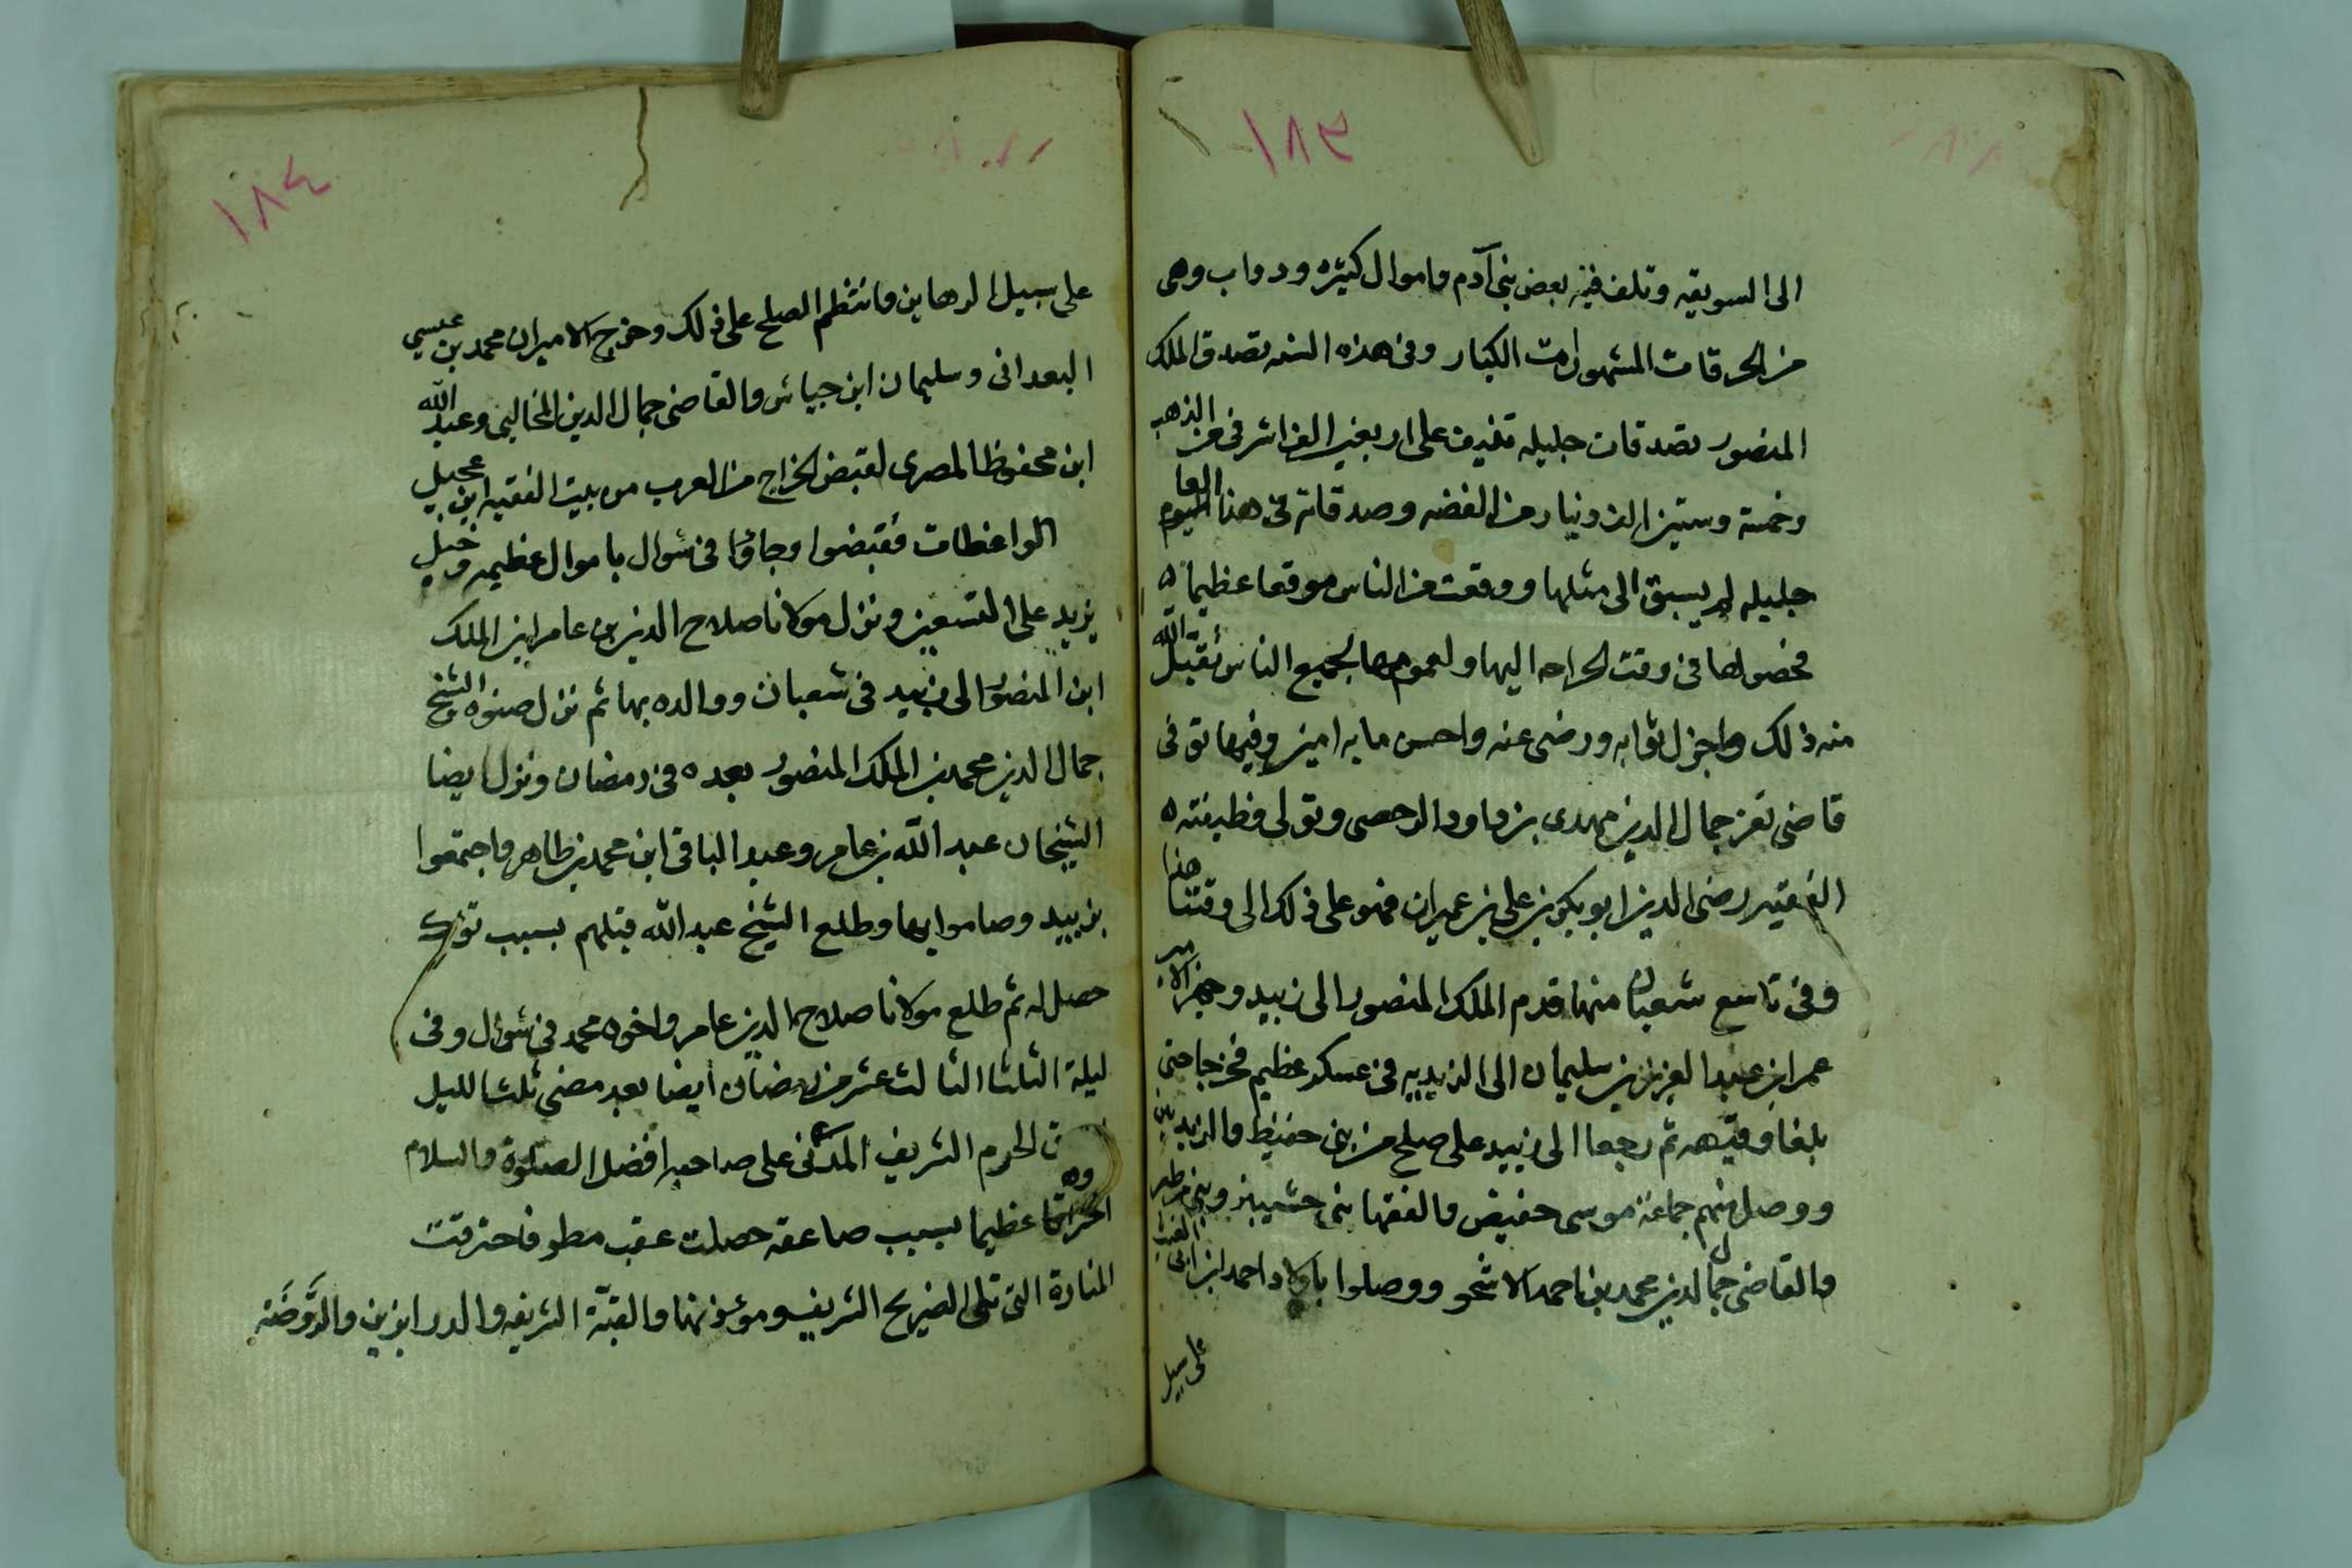 ١٨٣
الى السويقه وتلف فيه بعض بنى آدم واموال كثيره ودواب وهى
من الحرقات المشهورات الكبار وفى هذه السنه تصدق الملك
المنصور بصدقات جليله تنيف على اربعين الف اشرفى من الذهب
وخمسة وستين الف دينار من الفضه وصدقاته فى هذا العام
جليله لم يسبق الى مثلها ووقعت من الناس موقعا عظيما
لحصولها فى وقت الحراجه اليها ولعمومها لجميع الناس تقبل الله
منه ذلك واجزل ثوابه ورضى عنه واحسن مابه امين وفيها توفى
قاضى تعز جمال الدين مهدى بن داود الرحصى وتولى وظيفته
الفقيه رضى الدين ابو بكر بن على بن عميران فهو على ذلك الى وقتنا هذا
وفى تاسع شعبان منها قدم الملك المنصور الى زبيد وجهز الامير
عمر ابن عبد العزيز بن سليمان الى الزيديه فى عسكر عظيم فخرجا حتى
بلغا وقيهه ثم رجعا الى زبيد على صلح من بنى حفيظ والزيديين
ووصل منهم جماعة موسى حفيض والفقها بنى حشيبر وبنى مطير
والقاضى جمال الدين محمد بن احمد الاشخر ووصلوا باولاد احمد ابن ابى الغيث
على سبيل
١٨٤
على سبيل الرهاين وانتظم الصلح على ذلك وخرج الاميران محمد بن عيسى
البعدانى وسليمان ابن جياش والقاضى جمال الدين المخالبى وعبد الله
ابن محفوظ المصرى لقبض الخراج من العرب من بيت الفقيه ابن عجيل
الواعظات فقبضوا وجاؤا فى شوال باموال عظيمه وخيل
يزيد على التسعين ونزل مولانا صلاح الدين بن عامر ابن الملك
ابن المنصور الى زبيد فى شعبان ووالده بها ثم نزل صنوه الشيخ
جمال الدين محمد بن الملك المنصور بعده فى رمضان ونزل ايضا
الشيخان عبد الله بن عامر وعبد الباقى ابن محمد بن طاهر واجتمعوا
بزبيد وصاموا بها وطلع الشيخ عبد الله قبلهم بسبب توعك
حصل له ثم طلع مولانا صلاح الدين عامر واخوه محمد فى شوال وفى
ليلة الثلثا الثالث عشر من رمضان ايضا بعد مضى ثلث الليل
الحرم الشريف المدنى على صاحبه افضل الصلوة والسلام
احتراقا عظيما بسبب صاعقه حصلت عقب مطر فاحترقت
المنارة التى تلى الضريح الشريف ومؤذنها والقبّة الشريفه والدرابزين والروضه